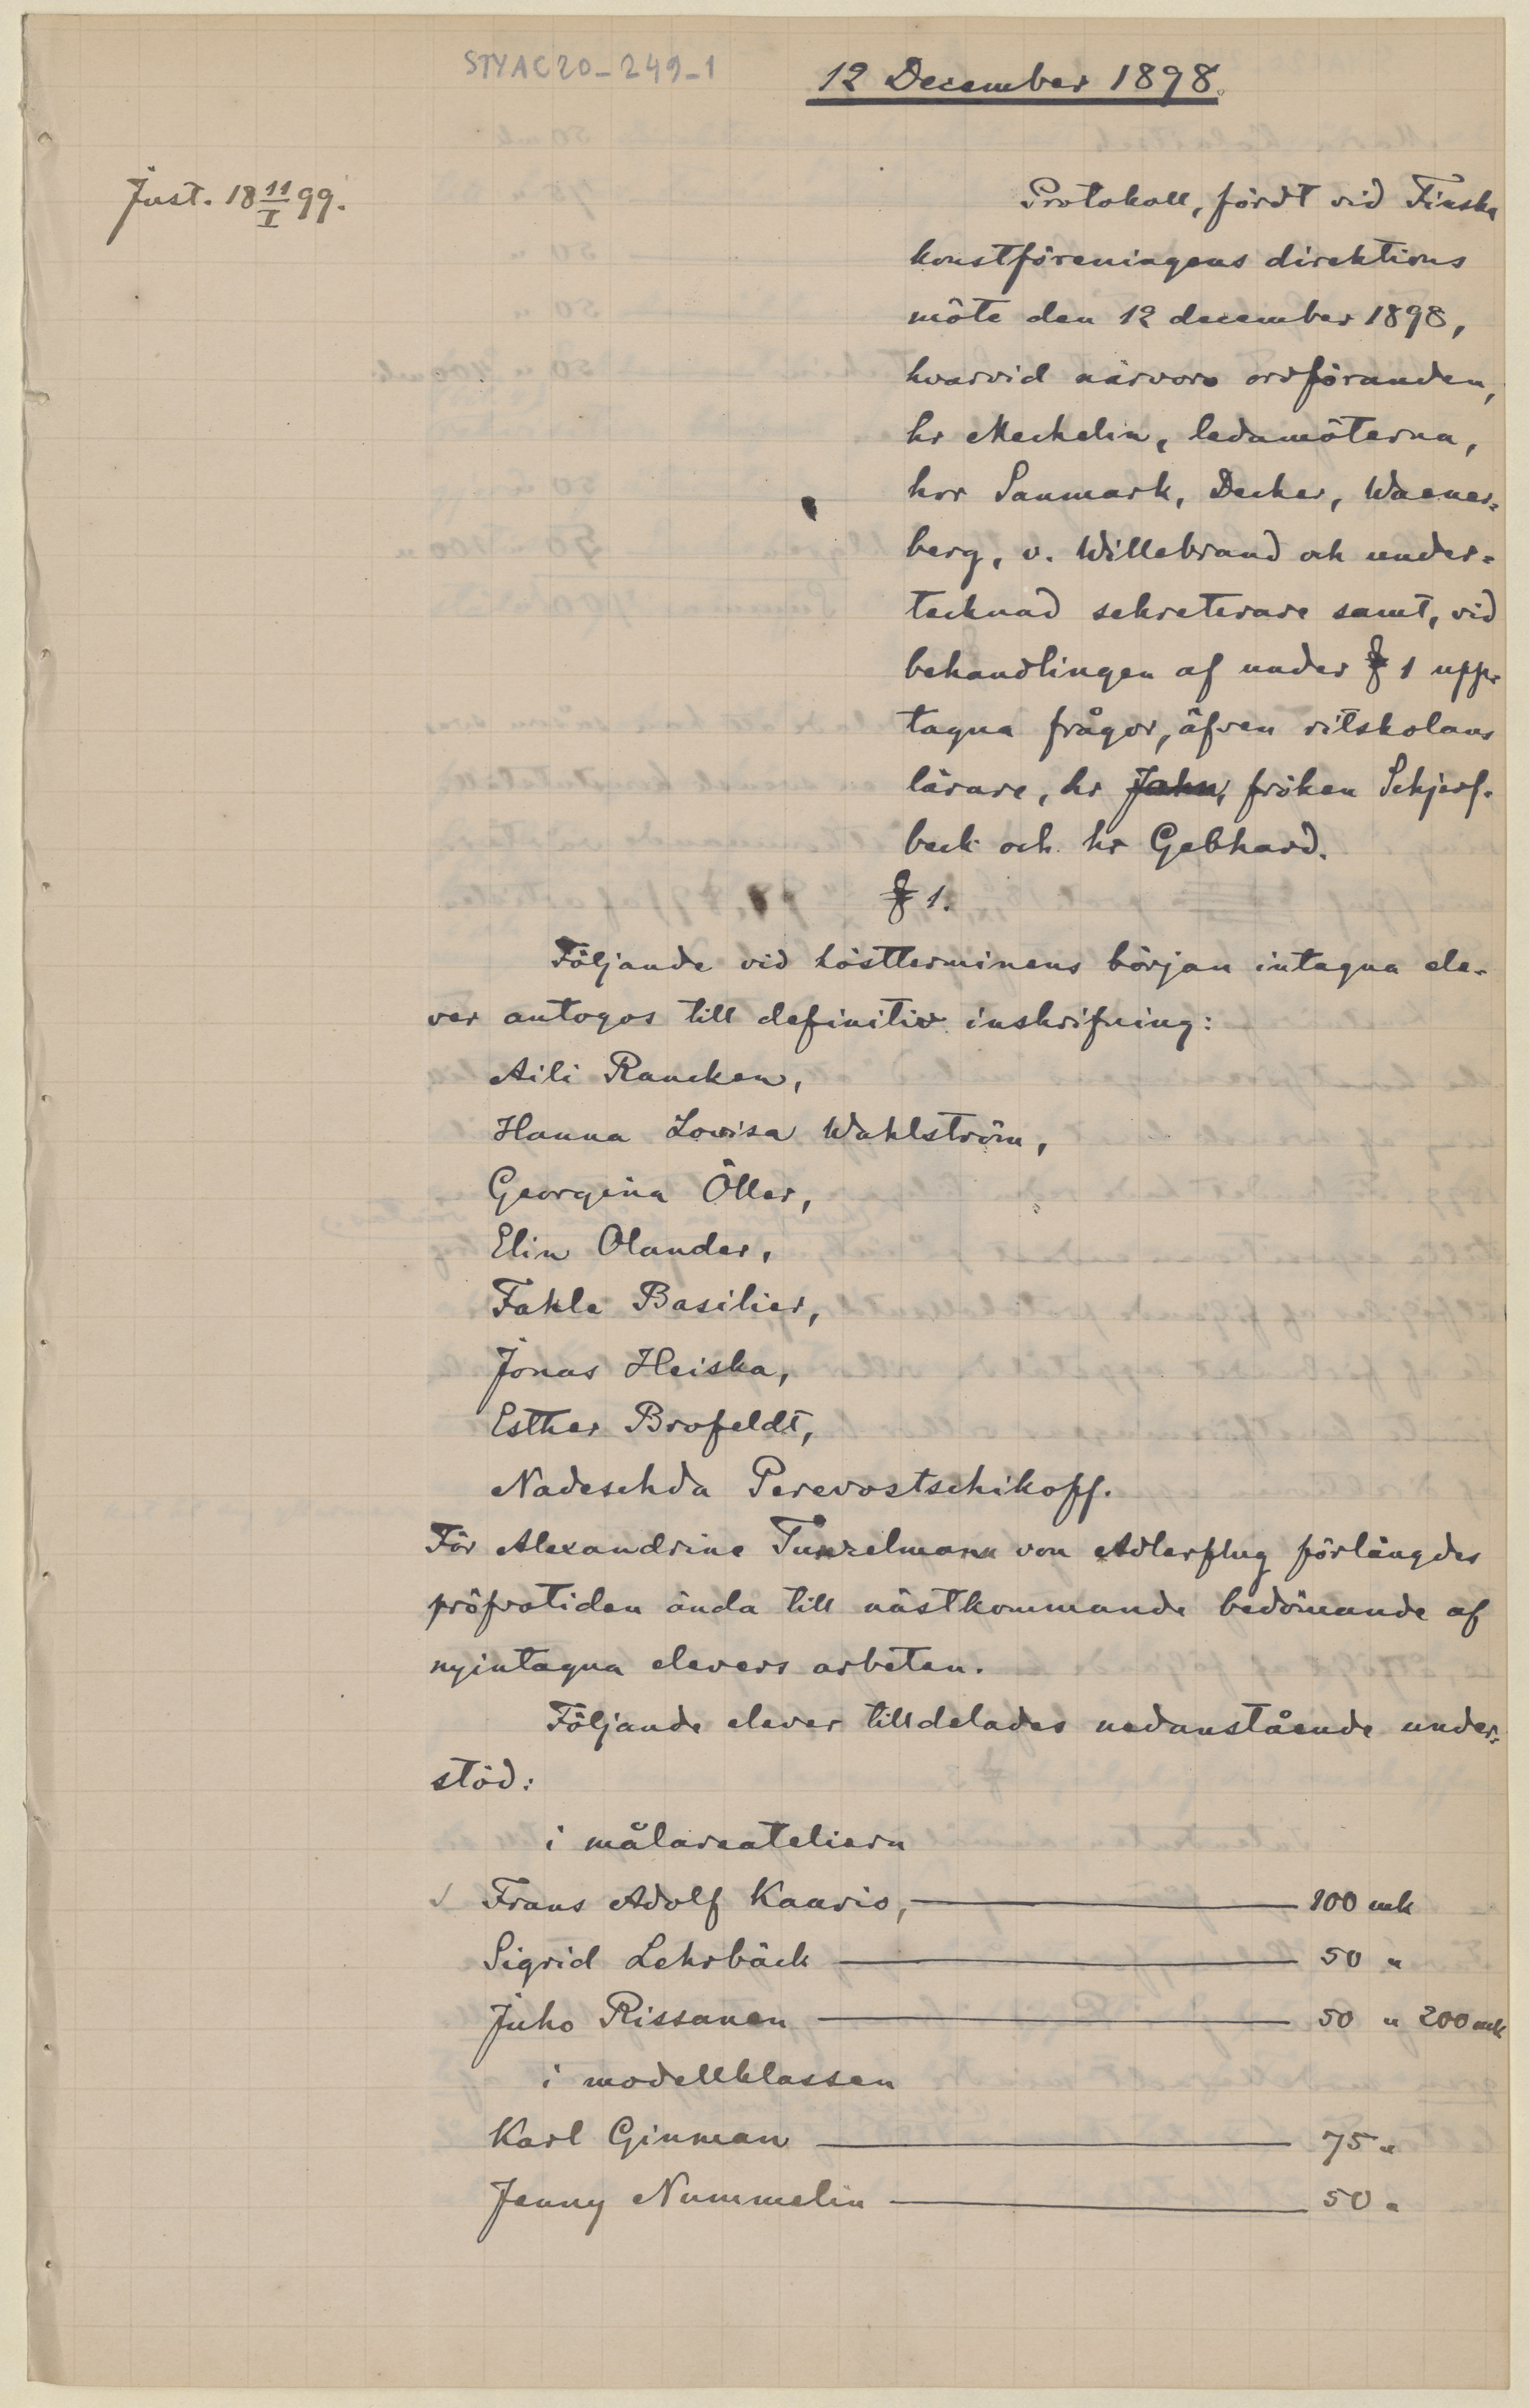 STYAC20-249-1
12 December 1898.
Just. 18 11/I 99.
Protokoll, fördt vid Finska
konstföreningens direktions
möte den 12 december 1898,
hvarvid närvoro ordföranden,
hr Mechelin, ledamöterna,
hrr Sanmark, Decker, Waener=
berg, v. Willebrand och under=
tecknad sekreterare samt, vid
behandlingen af under § 1 upp-
tagna frågor, äfven ritskolans
lärare, hr Jahn, fröken Schjerf-
beck och hr Gebhard.
§ 1.
Följande vid höstterminens början intagna ele-
ver antogos till definitiv inskrifning:
Aili Rancken,
Hanna Lovisa Wahlström,
Georgina Öller,
Elin Olander,
Fakle Basilier,
Jonas Heiska,
Esther Brofeldt,
Nadeschda Perevostschikoff.
För Alexandrine Tunzelmann von Adlerflug förlängdes
pröfvotiden ända till nästkommande bedömande af
nyintagna elevers arbeten.
Följande elever tilldelades nedanstående under=
stöd:
i målareateliern
√ Frans Adolf Kaario, — 100 mk
Sigrid Lehrbäck — 50 "
Juho Rissanen — 50 " 200 mk
i modellklassen
Karl Ginman — 75 "
Jenny Nummelin — 50 "